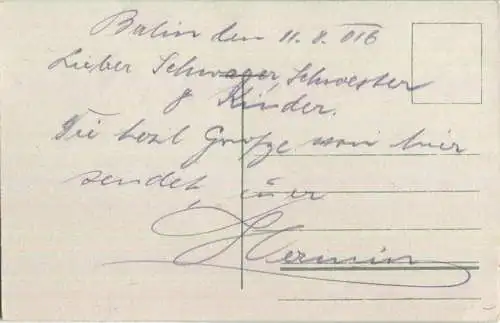 Berlin den 11. 8. 016
Lieber Schwager Schwester
& Kinder.
Die herzl Grüße von hier
sendet, euer
Hermin